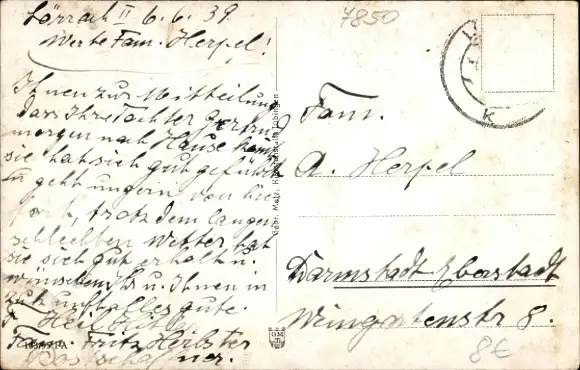 Lörrach II 6.6.39.
Werte Fam. Herpel!
Ihnen zur Mitteilung
dass Ihre Tochter Gertrud
morgen nach Hause kommt
sie hat sich gut geführt
u. geht ungern von hier
fort, trotz dem langen
schlechten Wetter, hat
sie sich gut erholt u.
wünschen Ihr u. Ihnen in
Zukunft alles gute.
Heil Hitler
Fam. Fritz Herbster
Postschaffner.
7850
Fam.
A. Herpel
Darmstadt Eberstadt
Weingartenstr 8.
8€
Gebr. Metz, Kunstanstalt, Tübingen
K